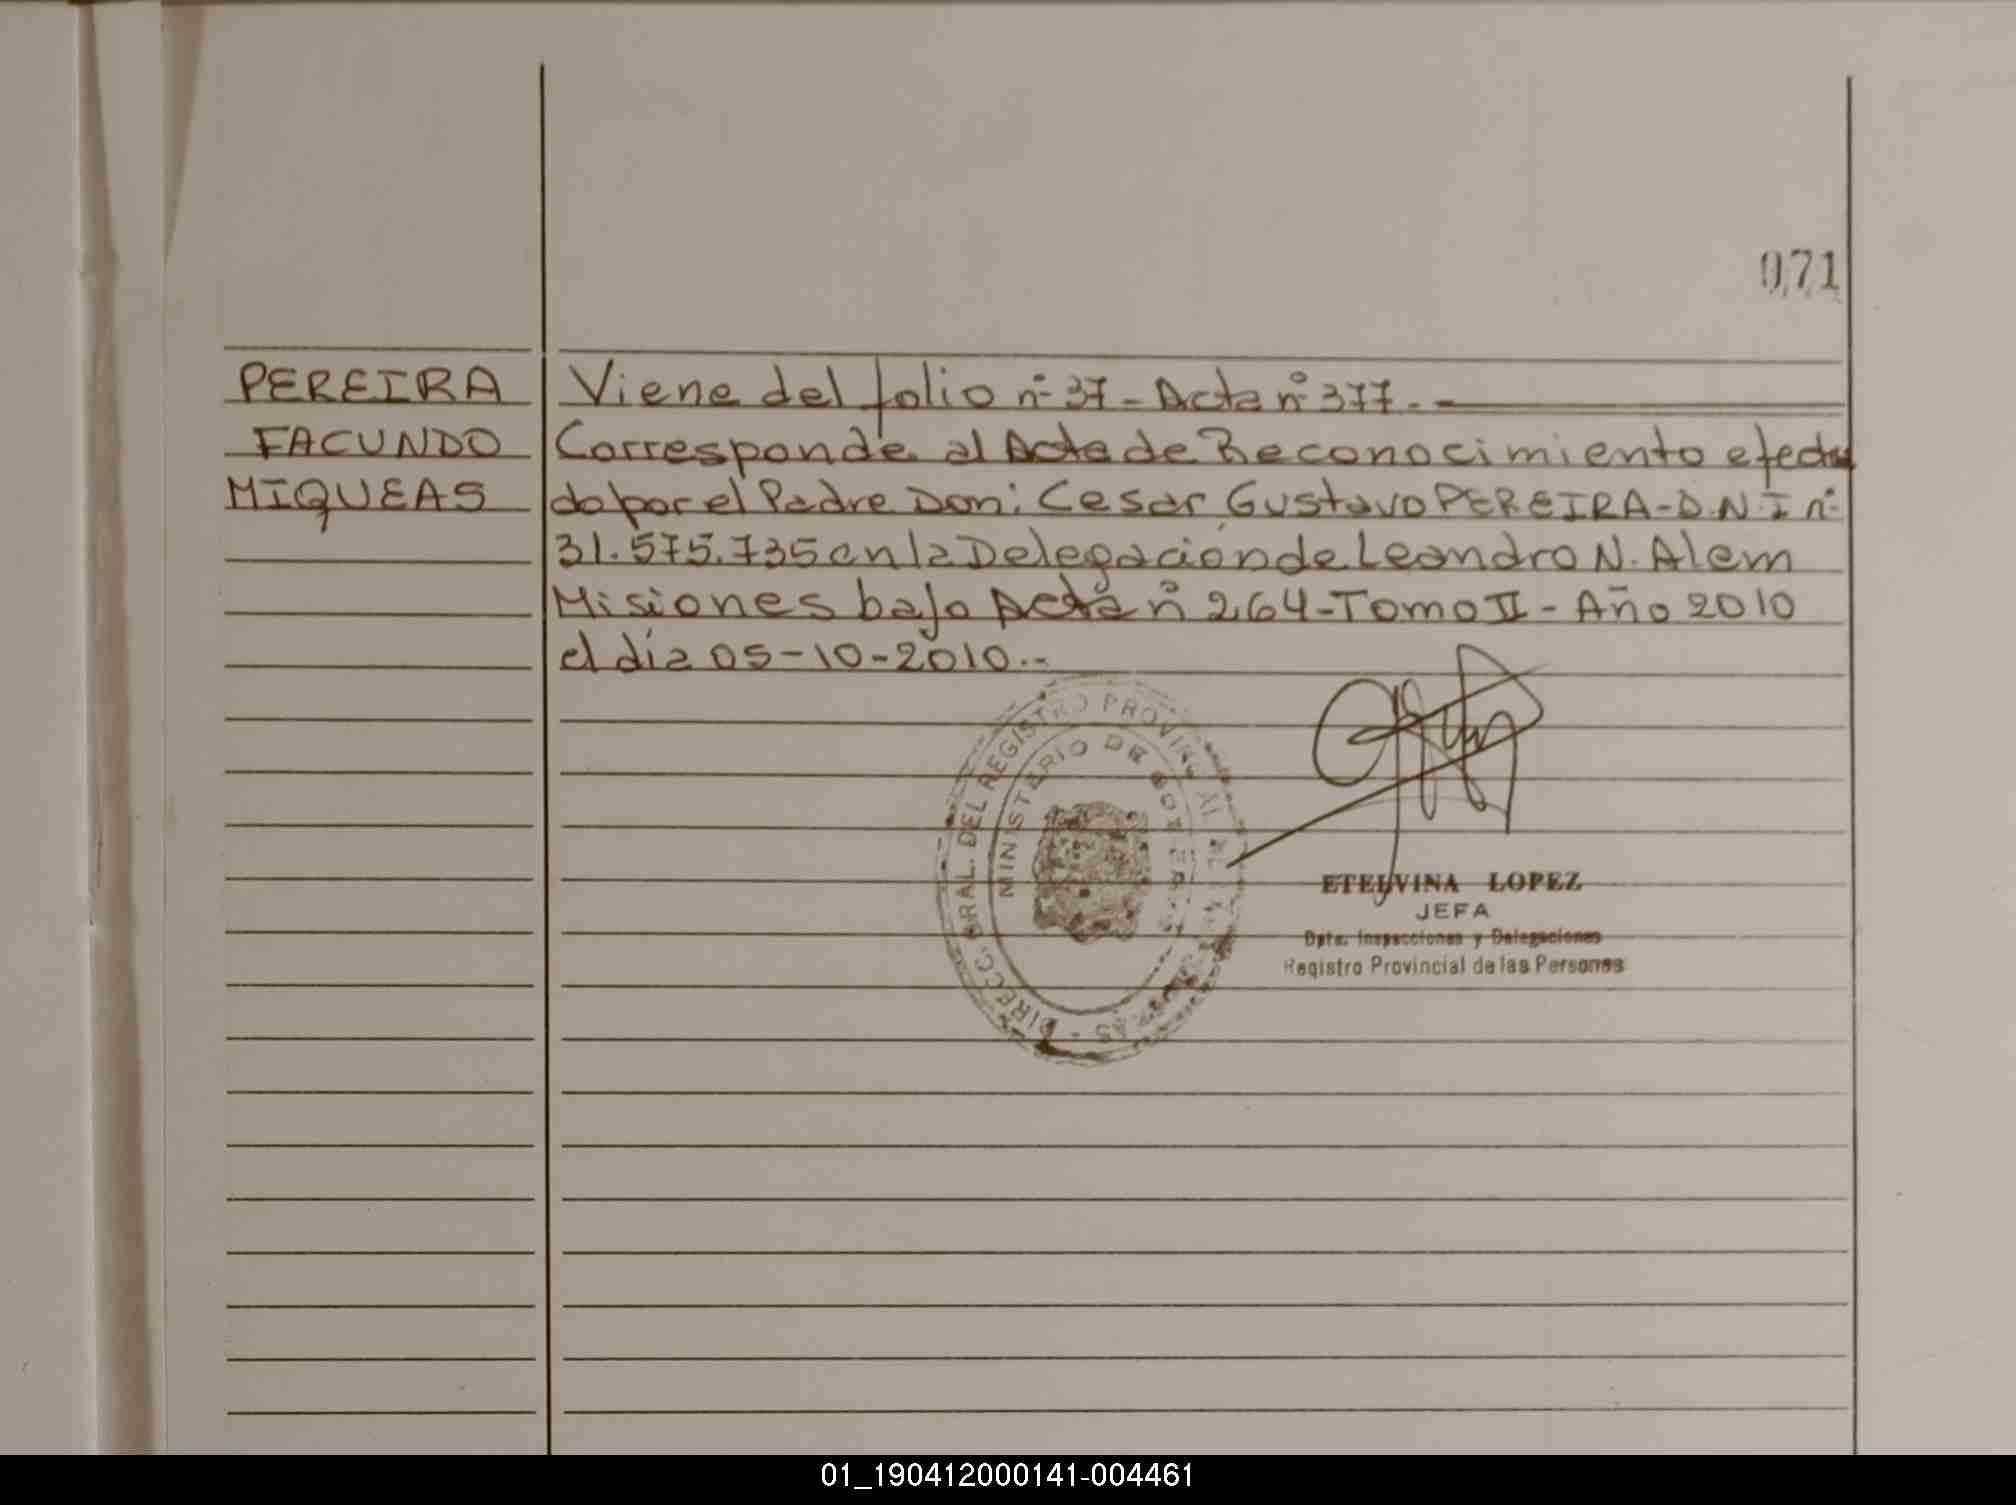 071
PEREIRA
FACUNDO
MIQUEAS
Viene del folio nº 37 - Acta nº 377. -
Corresponde al Acta de Reconocimiento efectua
do por el Padre Don: Cesar Gustavo PEREIRA - D.N.I nº
31.575.735 en la Delegación de Leandro N. Alem
Misiones bajo Acta nº 264 - Tomo II - Año 2010
el día 05-10-2010.-
DIRECC. GRAL. DEL REGISTRO PROVINCIAL DE LAS
MINISTERIO DE GOBIERNO
ETELVINA LOPEZ
JEFA
Dpto. Inspecciones y Delegaciones
Registro Provincial de las Personas
01_190412000141-004461